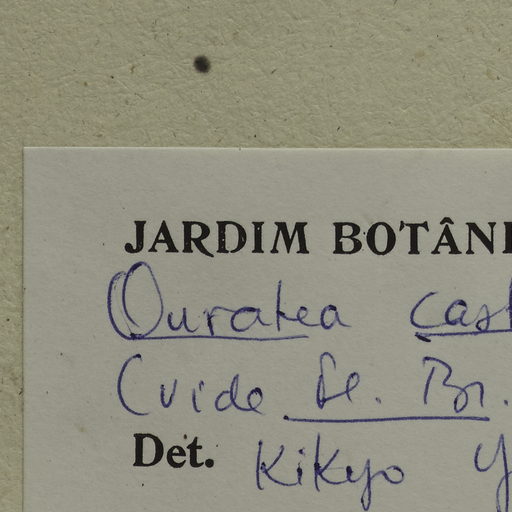 JARDIM BOTÂNI
Ouratea cast
(vide Fl. Br.
Det. Kikyo Y